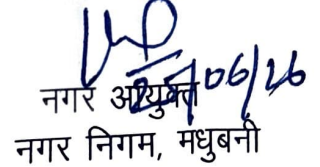 06/26
नगर आयुक्त
नगर निगम, मधुबनी